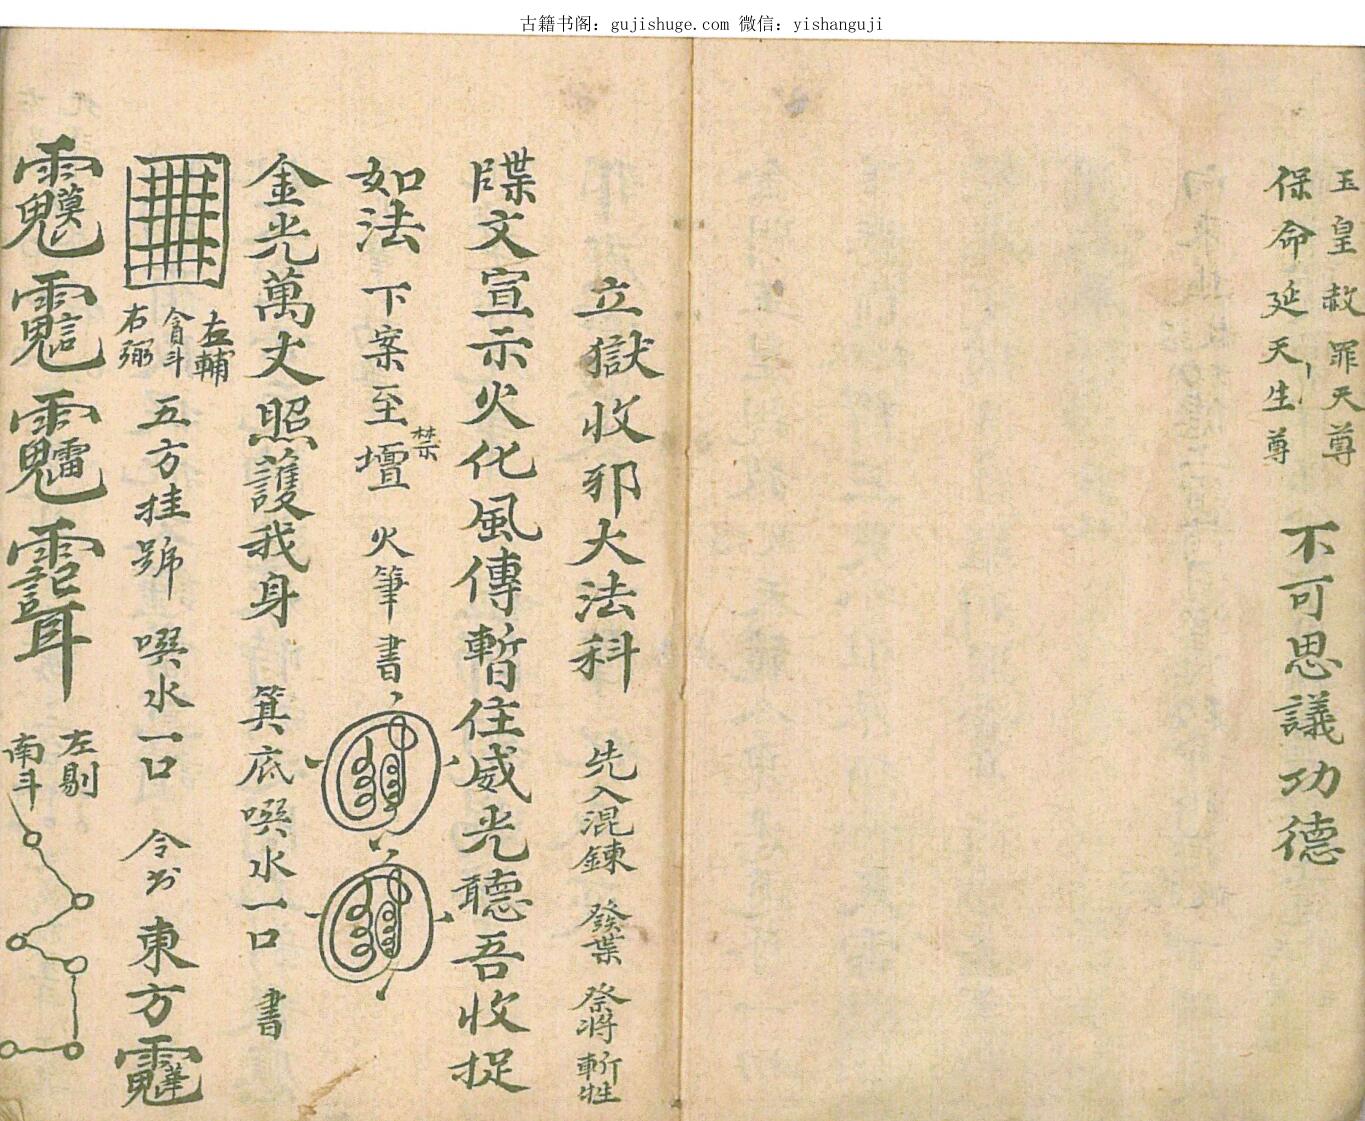 古籍书阁：gujishuge.com 微信：yishanguji
玉皇赦罪天尊
保命延天生尊
不可思議功德
立獄收邪大法科 先入混鍊 發葉 祭將 斬牲
牒文宣示火化風傳暫住威光聽吾收捉
如法 下案至壇 禁 火筆書
金光萬丈照護我身 箕底噀水一口 書
左輔
貪斗
右弼
五方挂號 噀水一口 令 東方
左剔
南斗